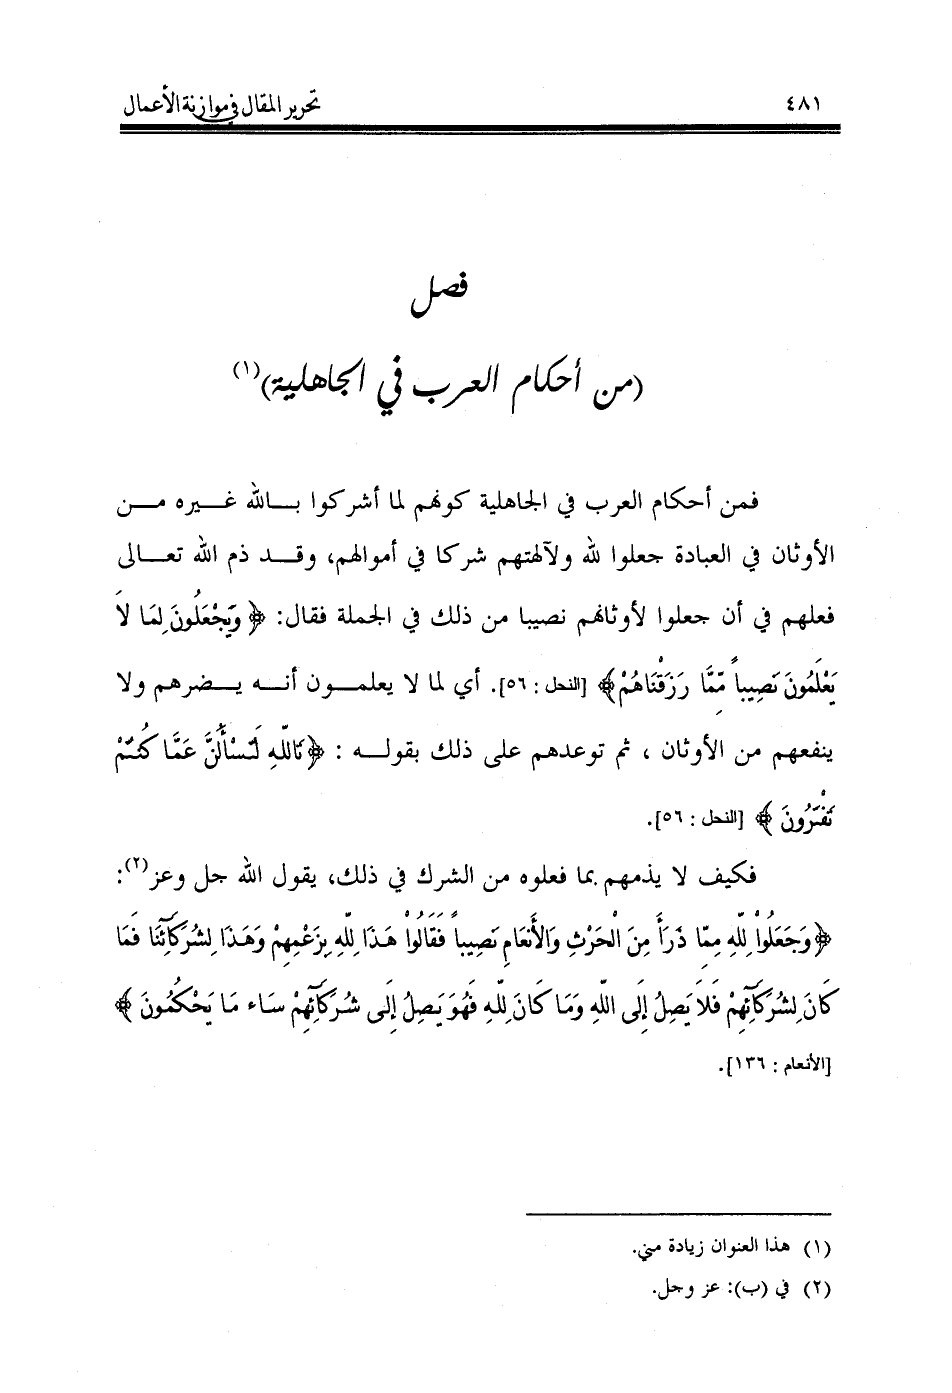 ٤٨١ تحرير المقال في موازنة الأعمال
فصل
(من أحكام العرب في الجاهلية)(١)
فمن أحكام العرب في الجاهلية كونهم لما أشركوا بــالله غــيره مــن
الأوثان في العبادة جعلوا لله ولآلهتهم شركا في أموالهم، وقــد ذم الله تعــالى
فعلهم في أن جعلوا لأوثانهم نصيبا من ذلك في الجملة فقال: ﴿ وَيَجْعَلُونَ لِمَا لاَ
يَعْلَمُونَ نَصِيباً مِّمَّا رَزَقْنَاهُمْ﴾ [النحل : ٥٦]. أي لما لا يعلمــون أنــه يــضرهم ولا
ينفعهم من الأوثان ، ثم توعدهم على ذلك بقولــه : ﴿ تَاللَّهِ لَتُسْأَلُنَّ عَمَّا كُنتُمْ
تَفْتَرُونَ ﴾ [النحل : ٥٦].
فكيف لا يذمهم بما فعلوه من الشرك في ذلك، يقول الله جل وعز(٢):
﴿وَجَعَلُواْ لِلّهِ مِمَّا ذَرَأَ مِنَ الْحَرْثِ وَالأَنْعَامِ نَصِيباً فَقَالُواْ هَذَا لِلّهِ بِزَعْمِهِمْ وَهَذَا لِشُرَكَآئِنَا فَمَا
كَانَ لِشُرَكَآئِهِمْ فَلاَ يَصِلُ إِلَى اللّهِ وَمَا كَانَ لِلّهِ فَهُوَ يَصِلُ إِلَى شُرَكَآئِهِمْ سَاء مَا يَحْكُمُونَ ﴾
[الأنعام : ١٣٦].
(١) هذا العنوان زيادة مني.
(٢) في (ب): عز وجل.